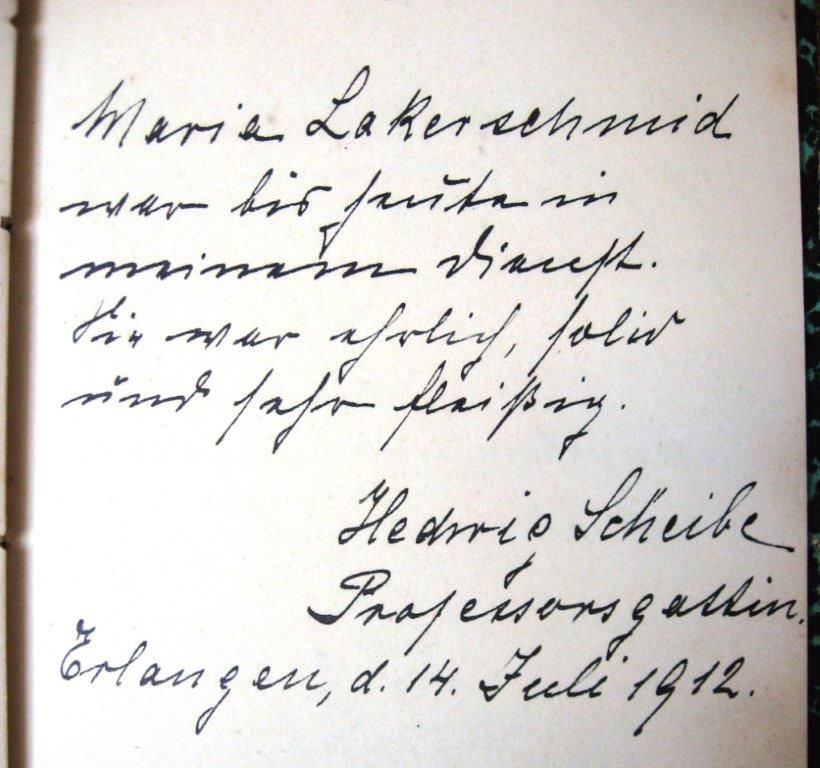 Maria Lakerschmid
war bis heute in
meinem Dienst.
Sie war ehrlich, solid
und sehr fleißig.
Hedwig Scheibe
Professorsgattin.
Erlangen, d. 14. Juli 1912.